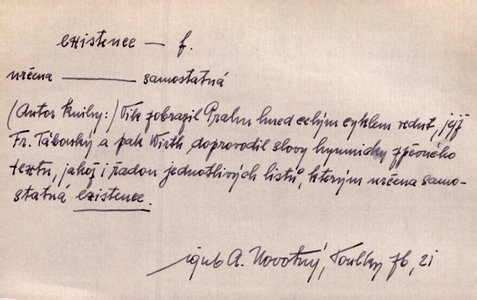 existence — f.
určena ——— samostatná
(Autor knihy:) Vik zobrazil Prahu hned celým cyklem vedut, jejž
Fr. Táborský a pak Wirth doprovodil slovy hymnicky zpěvného
textu, jakož i řadou jednotlivých listů, kterým určena samo-
statná existence.
A. Novotný, Toulky 76, 21